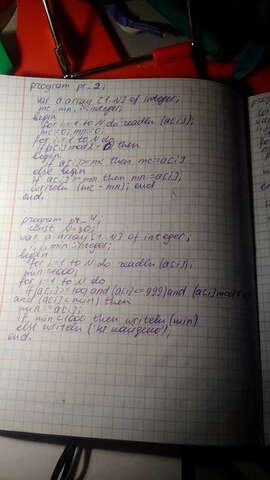 program pr_2;
var a array [1..N] of integer;
mc, mn, i: integer;
begin
for i:=1 to N do readln (a[i]);
mc:=0; mn:=0;
for i:=1 to N do
if a[i] mod 2 = 0 then
begin
if a[i]>mc then mc:=a[i]
else begin
if a[i]>mn then mn:=a[i]
writeln (mc - mn); end
end.
program pr_4;
const N=30;
var a array [1..N] of integer;
i, j, min: integer;
begin
for i:=1 to N do readln (a[i]);
min:=1000;
for i:=1 to N do
if (a[i]>=100) and (a[i]<=999) and (a[i] mod
and (a[i]<min) then
min:=a[i];
if min<1000 then writeln (min)
else writeln ('не найдено');
end.